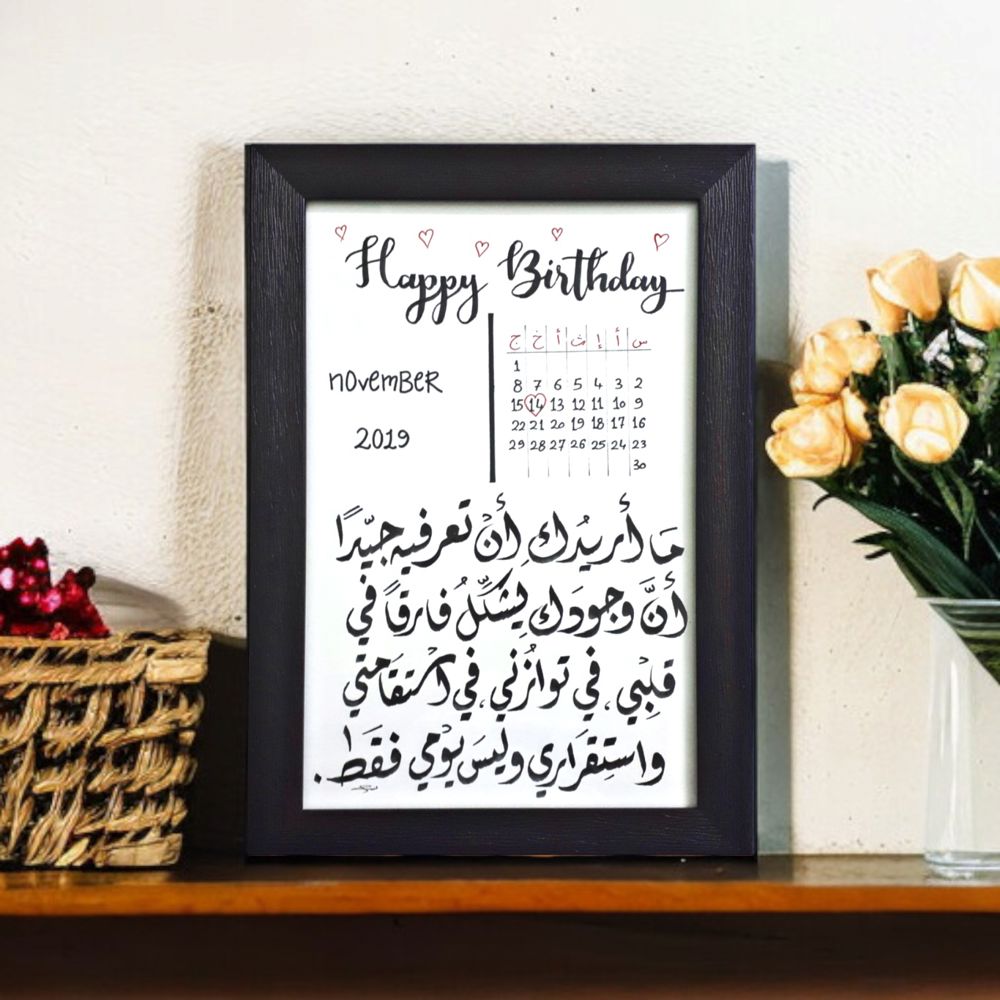 Happy Birthday
november
2019
س أ إ ث أ خ ج
1
2 3 4 5 6 7 8
9 10 11 12 13 14 15
16 17 18 19 20 21 22
23 24 25 26 27 28 29
30
مَا أُريدُكِ أَنْ تعرفيه جيّداً
أنَّ وجودَك يشكّلُ فارقاً في
قلبِي، في توازُني، في استقَامتي
واستِقرَاري وليسَ يوْمي فقَط.